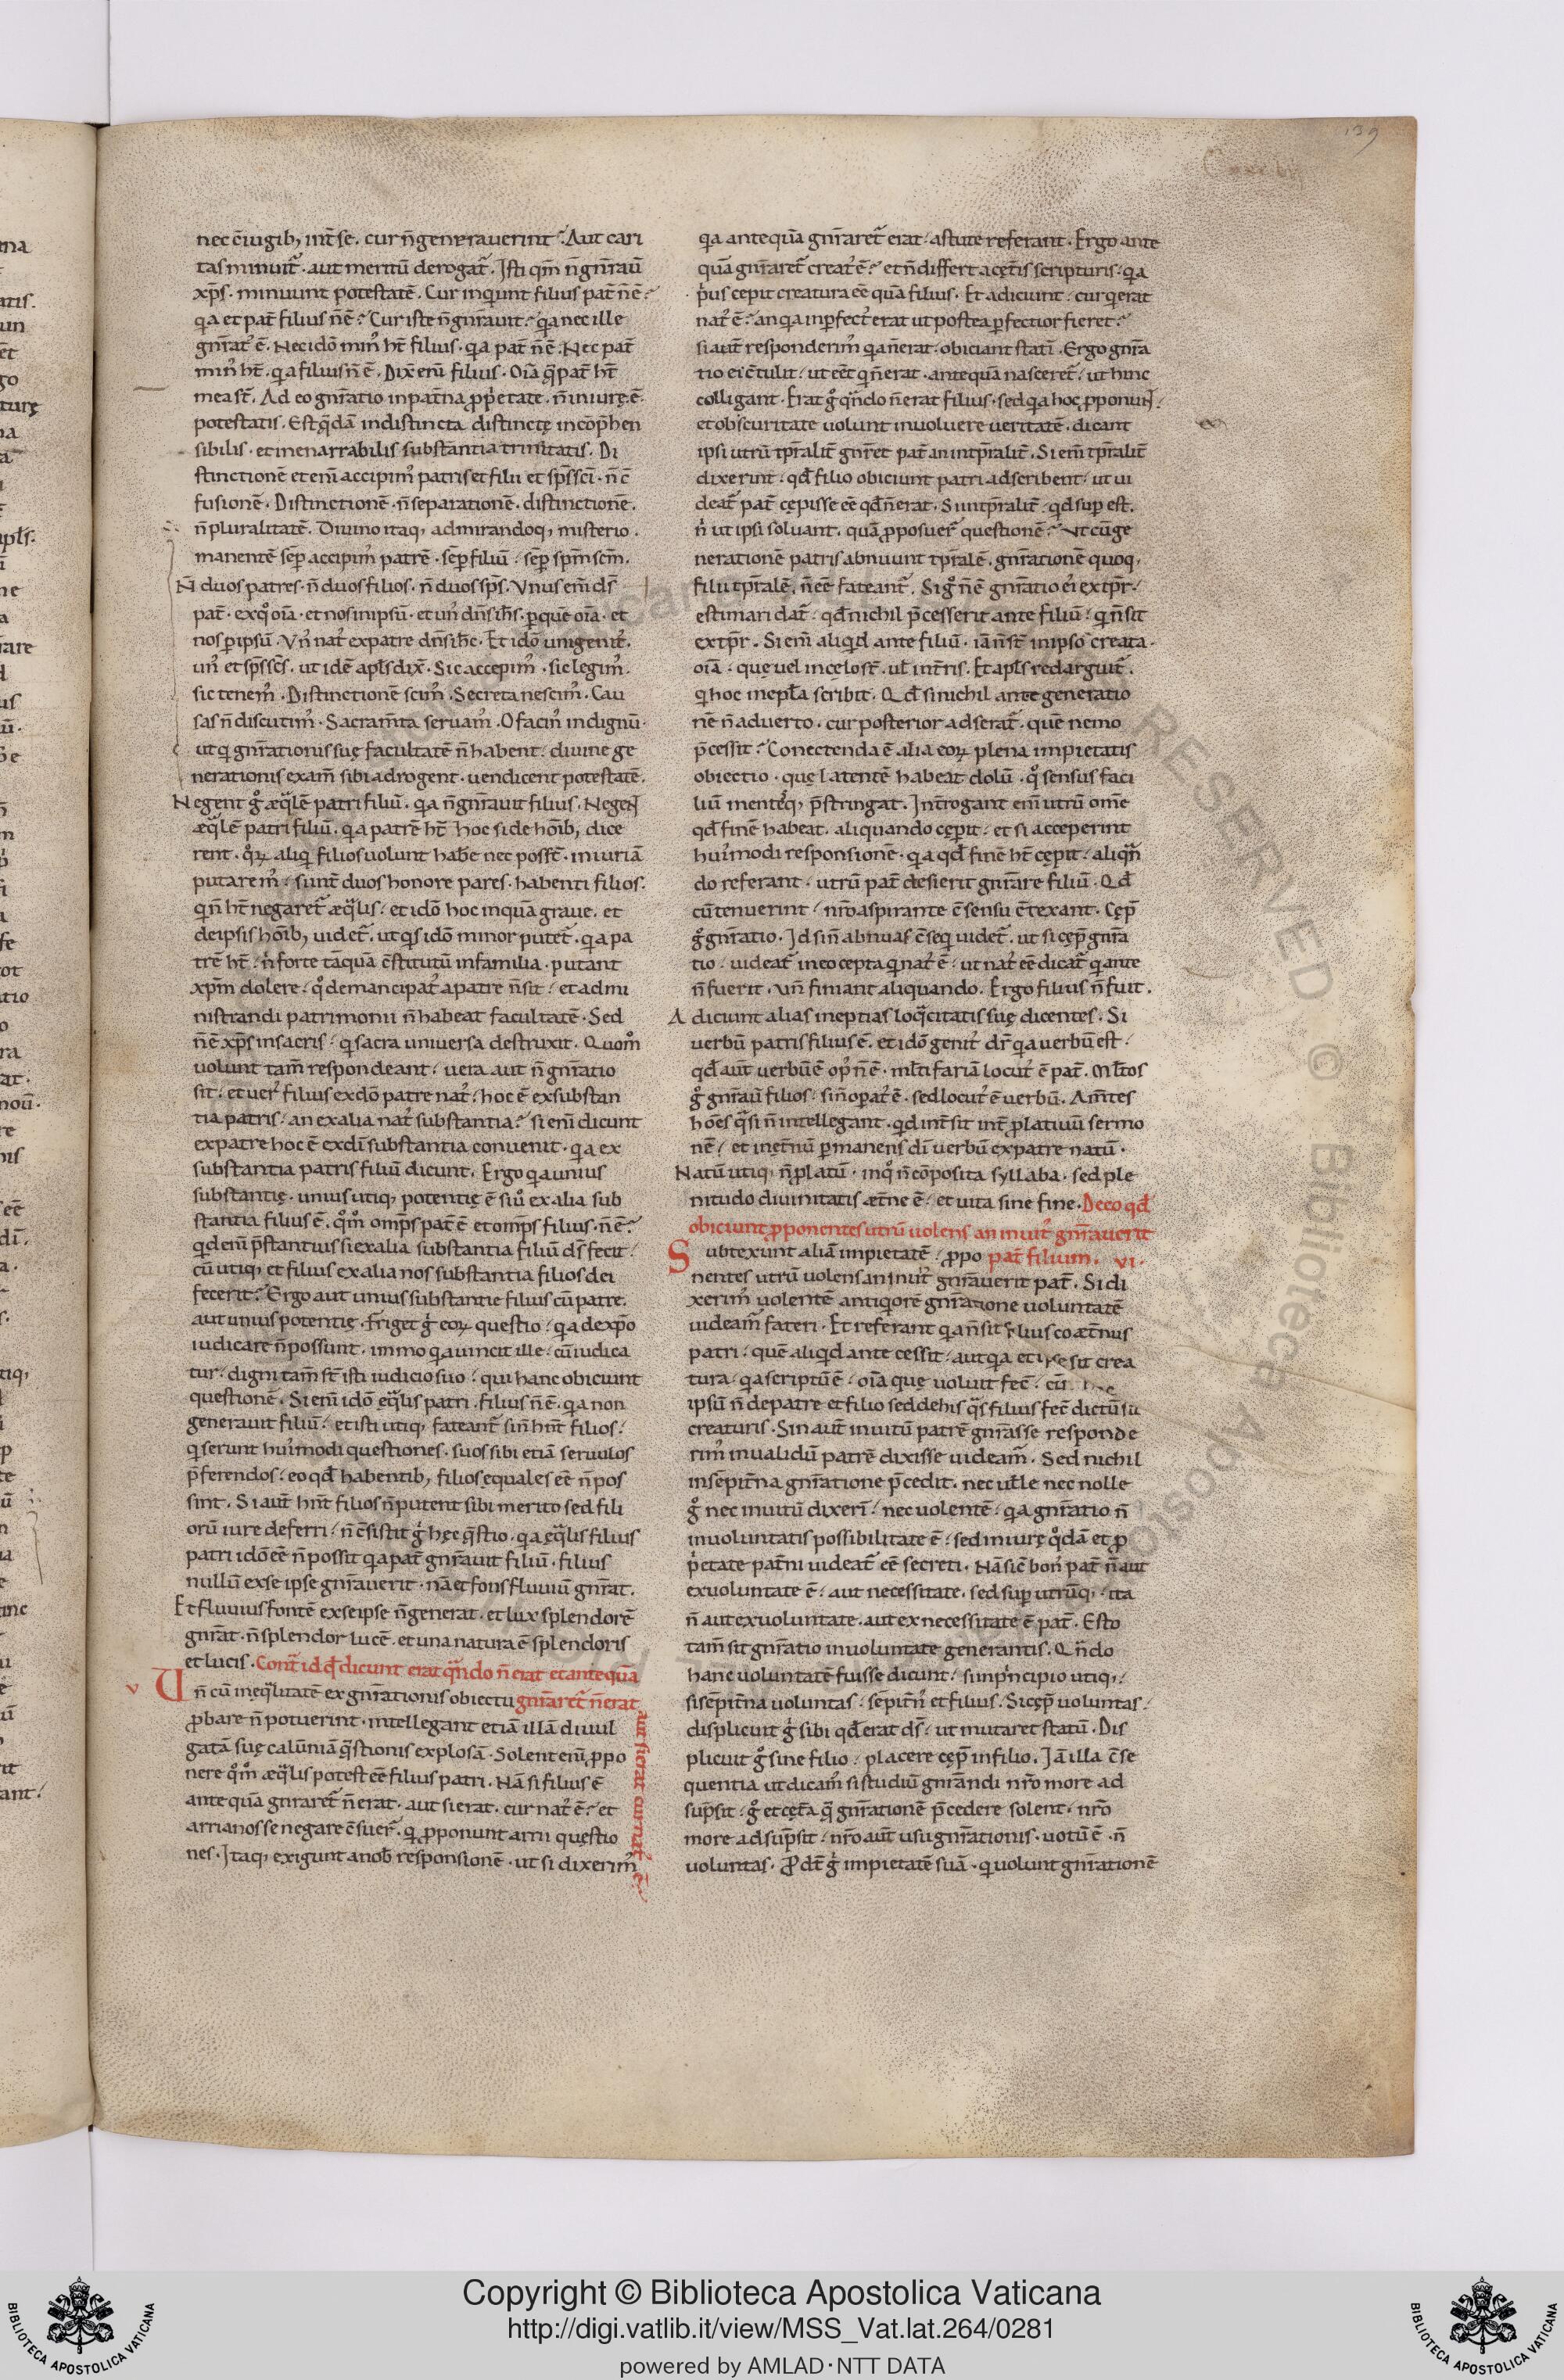 139
nec c̄iugib; int̄ se. cur n̄ generauerint? Aut cari
tas minuit᷑. aut meritū derogat᷑. Isti qm̄ n̄ gn̄rau̅
xp̄s. minuunt potestatē. Cur inquiunt filius pat̄ n̄ ē?
qa et pat̄ filius n̄ ē? Cur iste n̄ gn̄rauit? qa nec ille
gn̄rat᷒ ē. Nec idō min᷒ ht̄ filius. qa pat̄ n̄ ē. Nec pat̄
min᷒ ht̄. qa filius n̄ ē. Dix̄ enī filius. Oīa q̄ pat̄ ht̄
mea st̄. Adeo gn̄ratio in pat̄na ꝓp̄etate. n̄ in iurę ē.
potestatis. Est q̄dā indistincta distinctę incōp̄hen
sibilis. et inenarrabilis substantia trinitatis. Di
stinctionē etenī accipim᷒ patris et filii et sp̄s sc̄i. n̄ c̄
fusionē. Distinctionē. n̄ separationē. distinctionē.
n̄ pluralitatē. Diuino itaq; admirandoq; misterio.
manentē sēp accipim᷒ patrē. sēp filiū. sēp sp̄m sc̄m.
N̄ duos patres. n̄ duos filios. n̄ duos sp̄s. Vnus enī ds̄
pat̄. ex qͦ oīa. et nos in ipsū. et un᷒ dn̄s ih̄s. ꝑ quē oīa. et
nos ꝑ ipsū. Vn᷒ nat᷒ ex patre dn̄s ih̄c. Et idō unigenit᷒.
un᷒ et sp̄s sc̄s. ut idē apl̄s dix̄. Sic accepim᷒. sic legim᷒.
sic tenem᷒. Distinctionē scim᷒. Secreta nescim᷒. Cau
sas n̄ discutim᷒. Sacram̄ta seruam᷒. O facin᷒ indignū.
ut qi gn̄rationis suę facultatē n̄ habent. diuine ge
nerationis exam̄ sibi adrogent. uendicent potestatē.
Negent gͦ æqlē patri filiū. qa n̄ gn̄rauit filius. Negen̄t
æqlē patri filiū. qa patrē ht̄. hoc si de hoīb; dice
rent. qͦꝝ aliqi filios uolunt habe nec posst̄. iniuriā
putarem᷒. sunt̄ duos honore pares. habenti filios.
qi n̄ ht̄ negaret᷑ æqlis. et idō hoc inquā graue. et
de ipsis hoīb; uidet᷑. ut qis idō minor putet᷑. qa pa
trē ht̄. n̄ forte taquā c̄stitutū in familia. putant
xp̄m dolere. qͦ d emancipat᷒ a patre n̄ sit. et admi
nistrandi patrimonii n̄ habeat facultatē. Sed
n̄ ē xp̄s in sacris. qi sacra uniuersa destruxit. Quom̊
uolunt tam̄ respondeant. uera aut n̄ gn̄ratio
sit. et uer᷒ filius ex dō patre nat᷒. hoc ē ex substan
tia patris. an ex alia nat᷒ substantia? si enī dicunt
ex patre hoc ē ex dī substantia conuenit. qa ex
substantia patris filiū dicunt. Ergo qa unius
substantię. unius utiq; potentię ē siū ex alia sub
stantia filius ē. qͦm̊ omp̄s pat̄ ē et omp̄s filius. n̄ ē?
qid enī p̄stantius si ex alia substantia filiū ds̄ fecit.
cū utiq; et filius ex alia nos substantia filios dei
fecerit? Ergo aut unius substantie filius cū patre.
aut unius potentię. Friget gi eoꝝ questio. qa de xp̄o
iudicare n̄ possunt. immo qa uincit ille. cū iudica
tur. digni tam̄ st̄ isti iudicio suo. qui hanc obiciunt
questionē. Si enī idō ęqlis patri. filius n̄ ē. qa non
generauit filiū. et isti utiq; fateant᷑ si n̄ hn̄t filios.
qi serunt hui᷒modi questiones. suos sibi etiā seruulos
p̄ferendos. eo qd̄ habentib; filios equales eē n̄ pos
sint. Si aut̄ hn̄t filios n̄ putent sibi merito sed fili
orū iure deferri. n̄ c̄sistit gi hęc q̄stio. qa ęqlis filius
patri idō eē n̄ possit qa pat̄ gn̄rauit filiū. filius
nullū ex se ipse gn̄rauerit. nā et fons fluuiū gn̄rat.
Et fluuius fontē ex se ipse n̄ generat. et lux splendorē
gn̄rat. n̄ splendor lucē. et una natura ē splendoris
et lucis. Cont̄ id qd̄ dicunt erat qn̄do n̄ erat et antequā
v Un̄ cū ineqlitatē ex gn̄rationis obiectu gn̄raret᷑ n̄ erat
ꝓbare n̄ potuerint. intellegant etiā illā diuul
gatā suę calūniā q̄stionis explosā. Solent enī ꝓpo
nere qͦm̊ æqlis potest eē filius patri. Nā si filius ē
antequā gn̄raret᷑ n̄ erat. aut si erat. cur nat᷒ ē? et
arrianos se negare c̄suer᷑. qi ꝓponunt arrii questio
nes. Itaq; exigunt a nob̄ responsionē. ut si dixerim᷒
aut si erat cur nat᷒ ē?
qa antequā gn̄raret᷑ erat. astute referant. Ergo ante
quā gn̄raret᷑ creat᷒ ē? et n̄ differt a cęt̄is scripturis. qa
pi᷒us cepit creatura eē quā filius. Et adiciunt. cur qi erat
nat᷒ ē? an qa inꝑfect᷒ erat ut postea ꝑfectior fieret?
si aut̄ responderim᷒ qa n̄ erat. obiciant statī. Ergo gn̄ra
tio ei c̄tulit. ut eēt qi n̄ erat. antequā nasceret᷑. ut hinc
colligant. Erat gͦ qn̄do n̄ erat filius. sed qa hoc ꝓponun̄t.
et obscuritate uolunt inuoluere ueritatē. dicant
ipsi utrū tp̄ralit̄ gn̄ret pat̄ an intp̄ralit̄. Si enī tp̄ralit̄
dixerint. qd̄ filio obiciunt patri adscribent. ut ui
deat᷑ pat̄ cępisse eē qd̄ n̄ erat. Si intp̄ralit̄. qd supest.
ni ut ipsi soluant. quā ꝓposuer᷑ questionē? Vt cū ge
nerationē patris abnuunt tp̄ralē. gn̄rationē quoq;
filii tp̄ralē. n̄ eē fateant᷑. Si gͦ n̄ ē gn̄ratio ei᷒ ex tp̄r.
estimari dat᷑. qd̄ nichil p̄cesserit ante filiū. qi n̄ sit
ex tp̄r. Si enī aliqid ante filiū. iā n̄ st̄ in ipso creata.
oīa. quę uel in cęlo st̄. ul̄ in t̄ris. Et apl̄s redarguit᷑.
qi hoc in epl̄a scribit. Qd̄ si nichil ante generatio
nē n̄ aduerto. cur posterior adserat᷑. quē nemo
p̄cessit? Conectenda ē alia eoꝝ plena impietatis
obiectio. quę latentē habeat dolū. qͦ sensus faci
liū mentesq; p̄stringat. Int̄rogant enī utrū om̄e
qd̄ finē habeat. aliquando cępit. et si acceperint
hui᷒modi responsionē. qa qd̄ finē ht̄ cępit. aliqn̄
do referant. utrū pat̄ desierit gn̄rare filiū. Qd̄
cū tenuerint. nr̄o aspirante c̄sensu c̄texant. Cęp̄
gͦ gn̄ratio. Id si n̄ abnuas c̄seqi uidet᷑. ut si cęp̄ gn̄ra
tio. uideat᷑ in eo cepta qi nat᷒ ē. ut nat᷒ eē dicat᷑ qi ante
n̄ fuerit. Vn̄ firmant aliquando. Ergo filius n̄ fuit.
Adiciunt alias ineptias loqcitatis suę dicentes. Si
uerbū patris filius ē. et idō genit᷒ dr̄ qa uerbū est.
qd̄ aut̄ uerbū ē op᷒ n̄ ē. ml̄tifariā locut᷒ ē pat̄. Ml̄tos
gͦ gn̄rau̅ filios. si n̄ opat᷒ ē. sed locut᷒ ē uerbū. Am̄tes
hōes qsi n̄ intellegant. qd int̄sit int̄ ꝓlatiuū sermo
nē. et in ęt̄nū ꝑmanens dī uerbū ex patre natū.
Natū utiq; n̄ ꝓlatū. in qͦ n̄ cōposita syllaba. sed ple
nitudo diuinitatis æt̄ne ē. et uita sine fine. De eo qd̄
obiciunt ꝓponentes utrū uolens an inuit᷒ gn̄rauerit
Subtexunt aliā impietatē. ꝓpo pat̄ filium. vi.
nentes utrū uolens an inuit᷒ gn̄rauerit pat̄. Si di
xerim᷒ uolentē antiqiorē gn̄ratione uoluntatē
uideam᷑ fateri. Et referant qa n̄ sit filius coæt̄nus
patri. quē aliqid antecessit. aut qa et ipse sit crea
tura. qa scriptū ē. oīa quę uoluit fec̄. cū
ipsū n̄ de patre et filio sed de his qs filius fec̄ dictū sit
creaturis. Sin aut̄ inuitū patrē gn̄rasse responde
rim᷒ inualidū patrē dixisse uideam᷑. Sed nichil
in sēpit̄na gn̄ratione p̄cedit. nec uelle nec nolle
gͦ nec inuitū dixerī. nec uolentē. qa gn̄ratio n̄
in uoluntatis possibilitate ē. sed in iurę qͦdā et ꝓ
pietate pat̄ni uideat᷑ eē secreti. Nā sic̄ bon᷒ pat̄ n̄ aut
ex uoluntate ē. aut necessitate. sed sup utrūq; ita
n̄ aut ex uoluntate. aut ex necessitate ē pat̄. Esto
tam̄ sit gn̄ratio in uoluntate generantis. Qn̄do
hanc uoluntatē fuisse dicunt. si in pincipio utiq;.
si sēpit̄na uoluntas. sēpit̄n᷒ et filius. Si cęp̄ uoluntas.
displicuit gi sibi qd̄ erat ds̄. ut mutaret statū. Dis
plicuit gͦ sine filio. placere cęp̄ in filio. Iā illa c̄se
quentia ut dicam᷒ si studiū gn̄randi nr̄o more ad
sup̄sit. gͦ et cęt̄a q̄ gn̄rationē p̄cedere solent. nr̄o
more adsup̄sit. nr̄o aut̄ usu gn̄rationis. uotū ē. n̄
uoluntas. Ꝓdt̄ gi impietatē suā. qi uolunt gn̄rationē
Copyright © Biblioteca Apostolica Vaticana
http://digi.vatlib.it/view/MSS_Vat.lat.264/0281
powered by AMLAD·NTT DATA
BIBLIOTECA APOSTOLICA VATICANA
BIBLIOTECA APOSTOLICA VATICANA